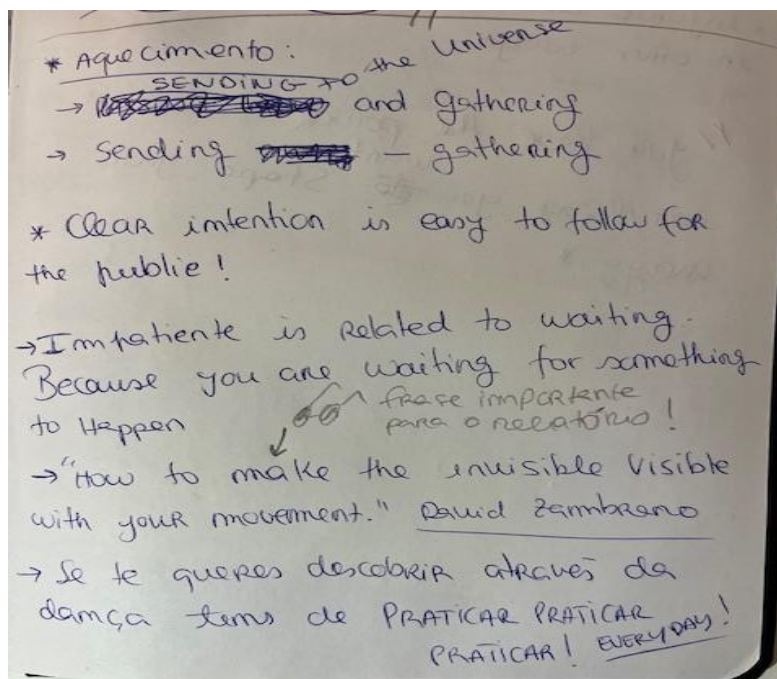 * Aquecimento:
SENDING to the Universe
→ and gathering
→ sending — gathering
* Clear intention is easy to follow for
the public!
→ Impatiente is Related to waiting.
Because you are waiting for something
to Happen
frase importante
para o relatório!
→ "How to make the invisible visible
with your movement." David Zambrano
→ Se te queres descobrir através da
dança tens de PRATICAR PRATICAR
PRATICAR! EVERYDAY!